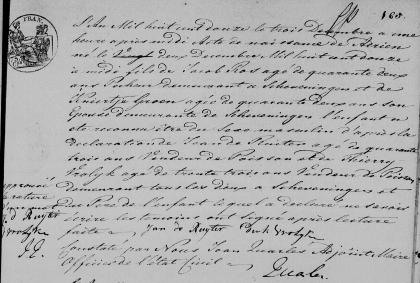 168.
L'An Mil huit cent douze le trois Decembre a une
heure après midi Acte de naissance de Arien
né le Vingt deux Decembre Mil huit cent douze
a midi fils de Jacob Ros agé de quarante deux
ans Pecheur demeurant a Scheveningen et de
Kneertje Groen agée de quarante deux ans son
Epouse demeurante de Scheveningen l'enfant a
eté reconnu etre du Sexe masculin d'après la
declaration de Jean de Ruiter agé de quarante
trois ans Vendeur de Poisson et de Thierry
Vrolyk agé de trente trois ans Vendeur de Poisson
demeurant tous les deux a Scheveningen et
du Pere de l'enfant lequel a declaré ne savoir
ecrire les temoins ont signé après lecture
faite Jan de Ruyter Dirk Vrolyk
Constaté par Nous Jean Quarles Adjoint Maire
Officier de l'état Civil
Quarles
approuvé
rature
d Ruyter
Vrolyk